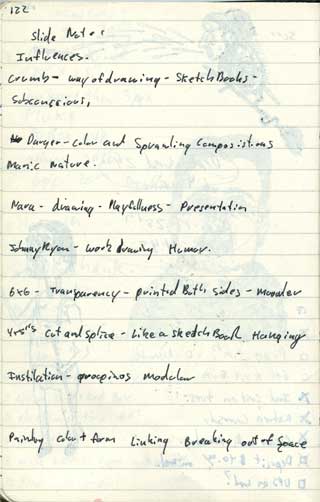 122
Slide Notes
Influences.
Crumb - way of drawing - Sketch Books -
Subconscious,
Darger - color and Sprawling Compositions
Manic nature.
Nara - drawing - Playfullness - Presentation
Johnny Ryan - work drawing Humor.
6x6 - Transparency - printed Both sides - Modular
Cut and Splice - Like a Sketch Book Hanging
modular
Painting color + form Linking Breaking out of Space